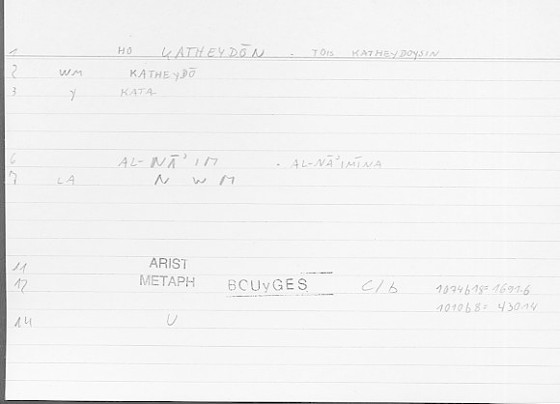 1 HO KATHEYDŌN - TOIS KATHEYDOYSIN
2 WM KATHEYDŌ
3 Y KATA
6 AL-NĀʾIM - AL-NĀʾIMĪNA
7 LA N W M
11 ARIST
12 METAPH BOUyGES C/b 1074b18=1691.6
1010b8= 43014
14 U